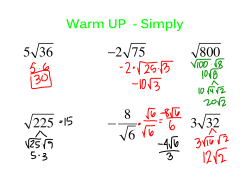 Warm UP - Simply
5√36
5·6
30
-2√75
-2·√25·√3
-10√3
√800
√100·√8
10√8
10√4√2
20√2
√225 = 15
√25√9
5·3
-8/√6 √6/√6 = -8√6/6
-4√6/3
3√32
3√16√2
12√2